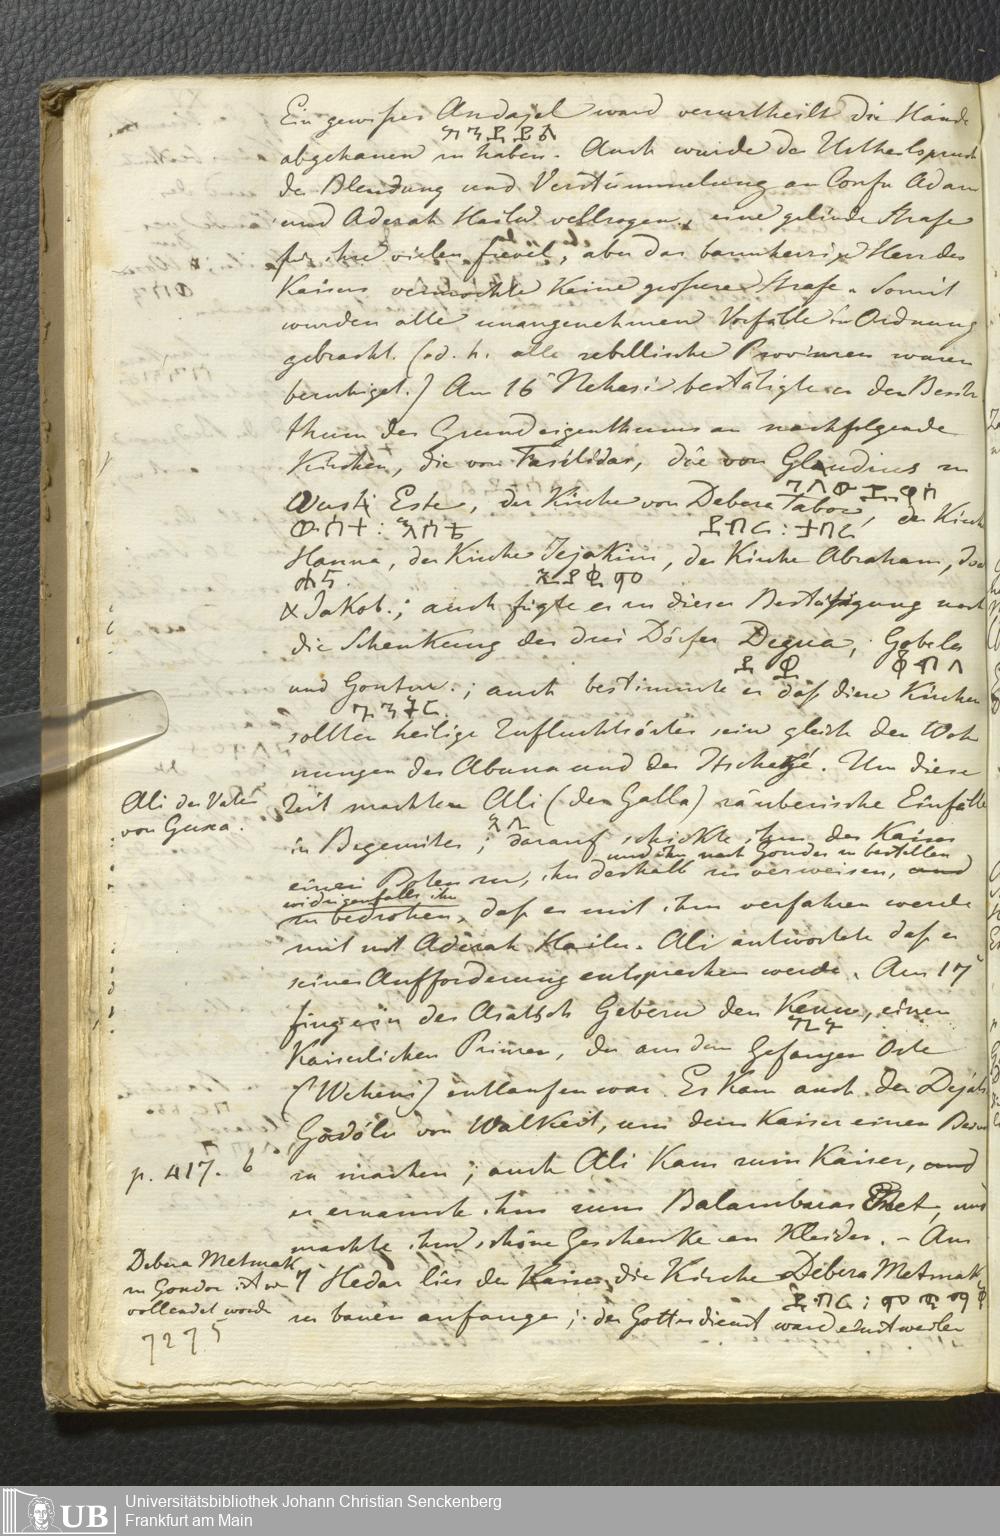 Ein gewisser Andajel ward verurtheilt die Hände
abgehauen zu haben. Auch wurde der Urtheilspruch
der Blendung und Verstümmelung an Confu Adam
und Aderah Hailu vollzogen, eine gelinde Strafe
für ihre vielen Frevel, aber das barmherzige Herz des
Kaisers vermochte keine grösere Strafe. Somit
wurden alle unangenehmen Vorfälle in Ordnung
gebracht. (d. h. alle rebellische Provinzen waren
beruhiget.) Am 16 Nehasi bestätigte er den Besitz
thum des Grundeigenthums an nachfolgende
Kirchen, die von Fasilidas, die von Glaudius zu
Wusti Este, der Kirche von Debera Tabor, der Kirche
ውስተ: እስቴ ደብር: ታቦር
Hanna, der Kirche Jejakim, der Kirche Abraham, Isac
ሐና
& Jakob.; auch fügte er zu dieser Bestätigung noch
die Schenkung der drei Dörfer Degua, Gobela
ቆበላ
und Gontor.; auch bestimmte er daß diese Kirchen
ጎንተር
sollten heilige Zufluchtsörter sein gleich den Woh
nungen des Abuna und des Itschege. Um diese
Ali der Vater
von Guxa.
Zeit machten Ali (der Galla) räuberische Einfälle
in Begemiter; darauf schickte ihm der Kaiser
und ihn nach Gondar zu bestellen
einen Boten zu, ihn deshalb zu verweisen, und
widrigenfalls ihn
zu bedrohen, daß er mit ihm verfahren werde
wie mit Aderah Hailu. Ali antwortete daß er
seiner Aufforderung entsprechen werde. Am 17
fing ein der Asatsch Geberu den Kenu, einen
Kaiserlichen Prinzen, der aus dem Gefangen Orte
(Wehni) entlaufen war. Es kam auch der Dejats
Godolu von Walkeit, um dem Kaiser einen Besuch
p. 417. b
zu machen; auch Ali kam zum Kaiser, und
er ernannte ihn zum Balambaras, und
machte ihm schöne Geschenke an Kleider. – Am
Debera Metmak
zu Gondar ist
vollendet worden
7 Hedar lies der Kaiser die Kirche Debera Metmak
ደብር: ምጥማቅ
zu bauen anfangen; der Gottesdienst ward einstweilen
7275
Universitätsbibliothek Johann Christian Senckenberg
Frankfurt am Main
UB